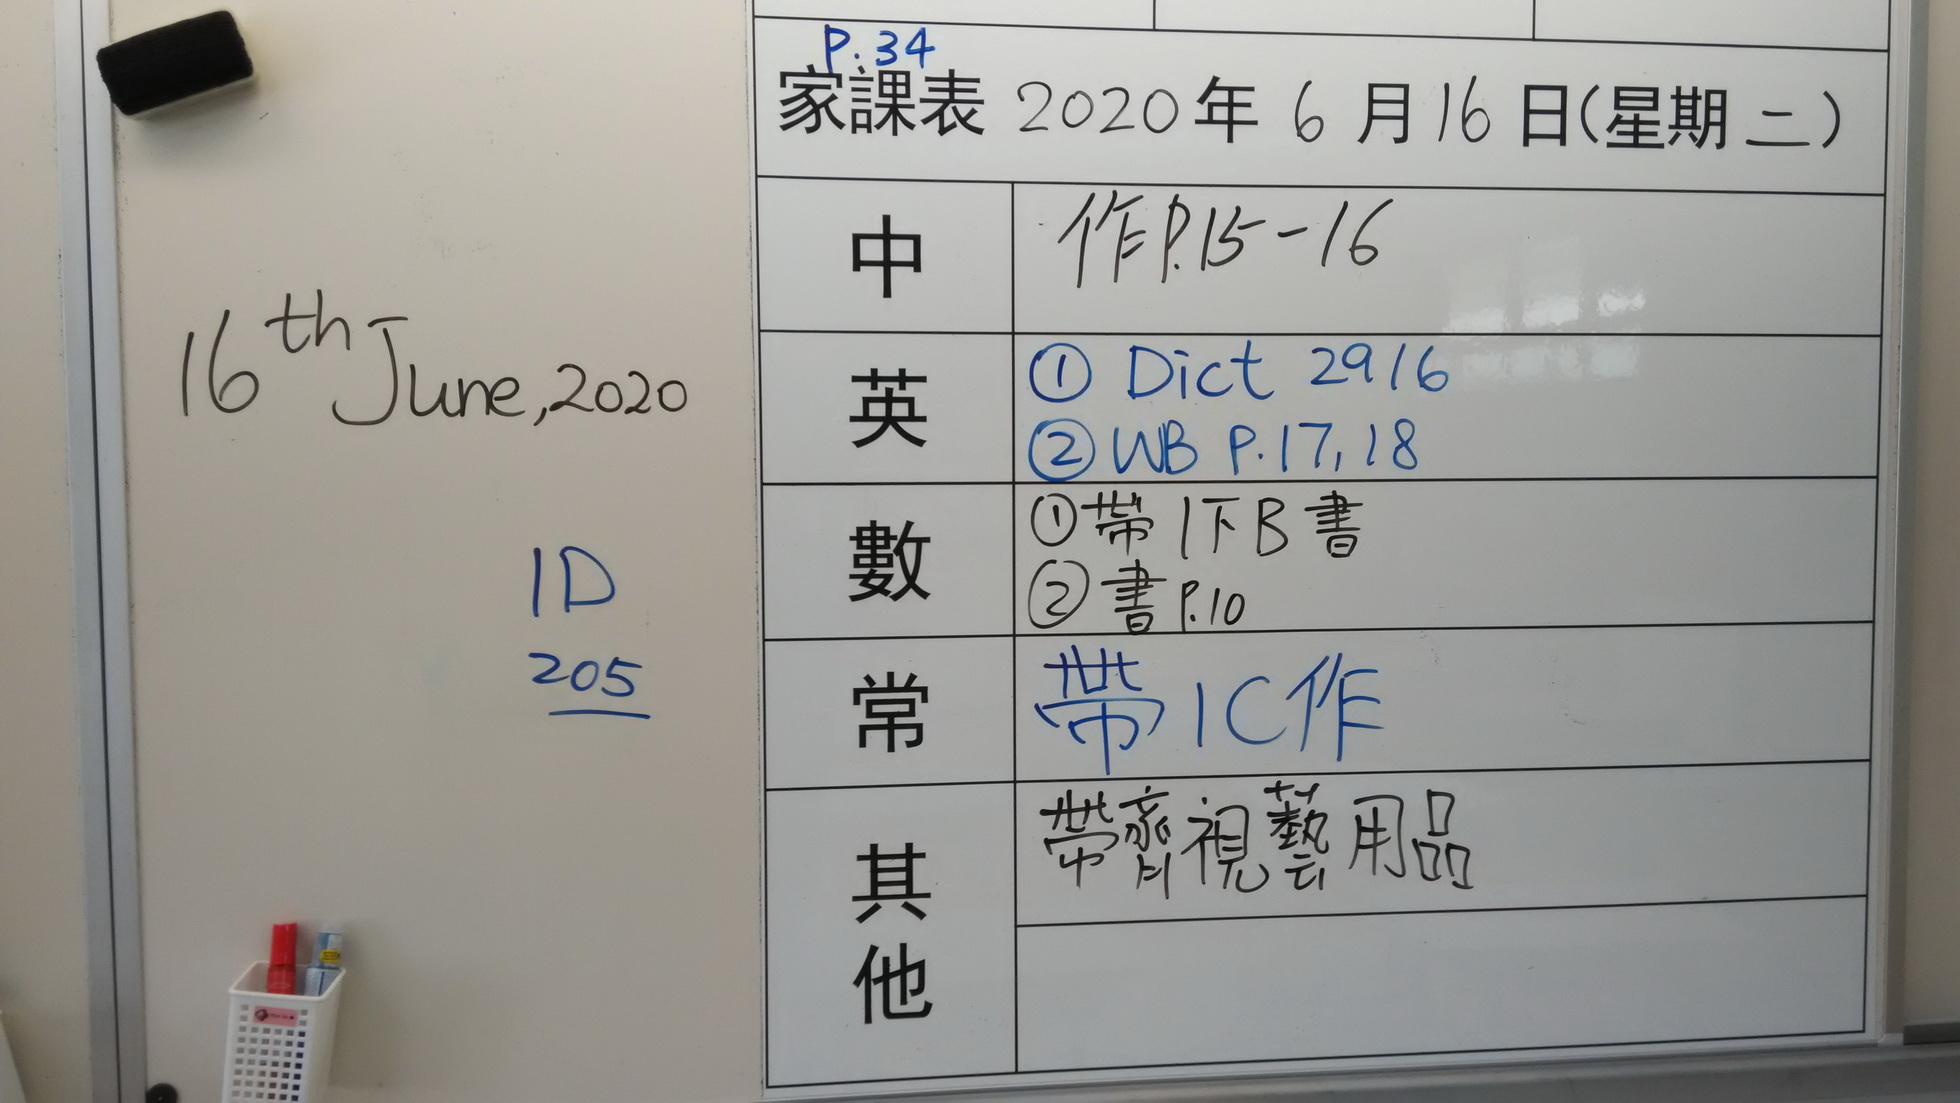 P.34
家課表 2020年 6 月 16 日(星期 二)
中
作P.15-16
英
① Dict 2916
② WB P.17,18
數
①帶1下B書
②書P.10
常
帶1C作
其他
帶齊視藝用品
16th June, 2020
1D
205